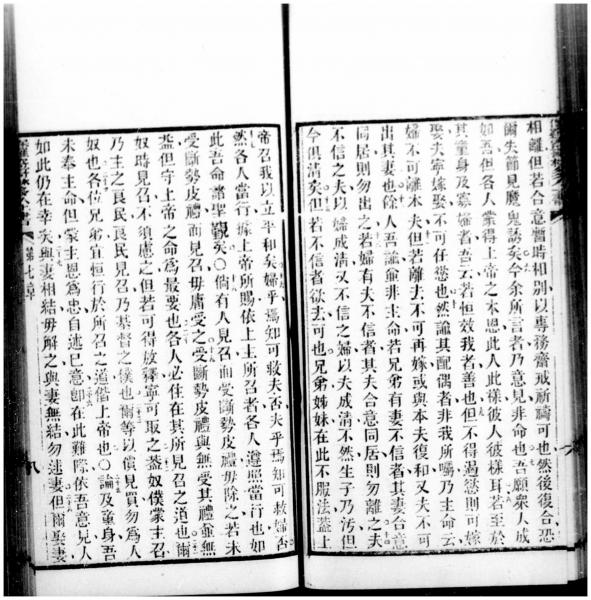 相離但若合意暫時相別以專務齋戒祈禱可也然後復合恐
爾失節見魔鬼誘矣今余所言者乃意見非命也吾願眾人成
如吾但各人蒙得上帝之本恩此人此樣彼人彼樣耳若至於
其童身及寡婦者吾云若恒效我者善也但不得遏慾則可嫁
娶夫寧嫁娶不可任慾也然論其配偶者非我所囑乃主命云
婦不可離本夫但若離去不可再嫁或與本夫復和又夫不可
出其妻也餘人吾論並非主命若兄弟有妻不信者其妻合意
同居則勿出之若婦有夫不信者其夫合意同居則勿離之夫
不信之夫以婦成清又不信之婦以夫成清不然生子乃污但
今俱清矣但若不信者欲去可也兄弟姊妹在此不服法蓋上
帝召我以立平和矣婦乎焉知可救夫否夫乎焉知可救婦否
然各人當行據上帝所賜依上主所召者各人遵照當行也如
此吾命諸聖觀矣〇倘有人見召而受斷勢皮禮毋除之若未
受斷勢皮禮而見召毋庸受之受斷勢皮禮與無受其禮並無
益但守上帝之命為最要也各人必住在其所見召之道也爾
奴時見召不須慮之但若可得放釋寧可取之蓋奴僕蒙主召
乃主之良民良民見召乃基督之僕也爾等以價見買勿為人
奴也各位兄弟宜恒行於所召之道偕上帝也〇論及童身吾
未奉主命但蒙主恩為忠自述己意卽在此難際依吾意見人
如此仍在幸矣與妻相結毋解之與妻無結勿逑妻但爾娶妻
第七章
八